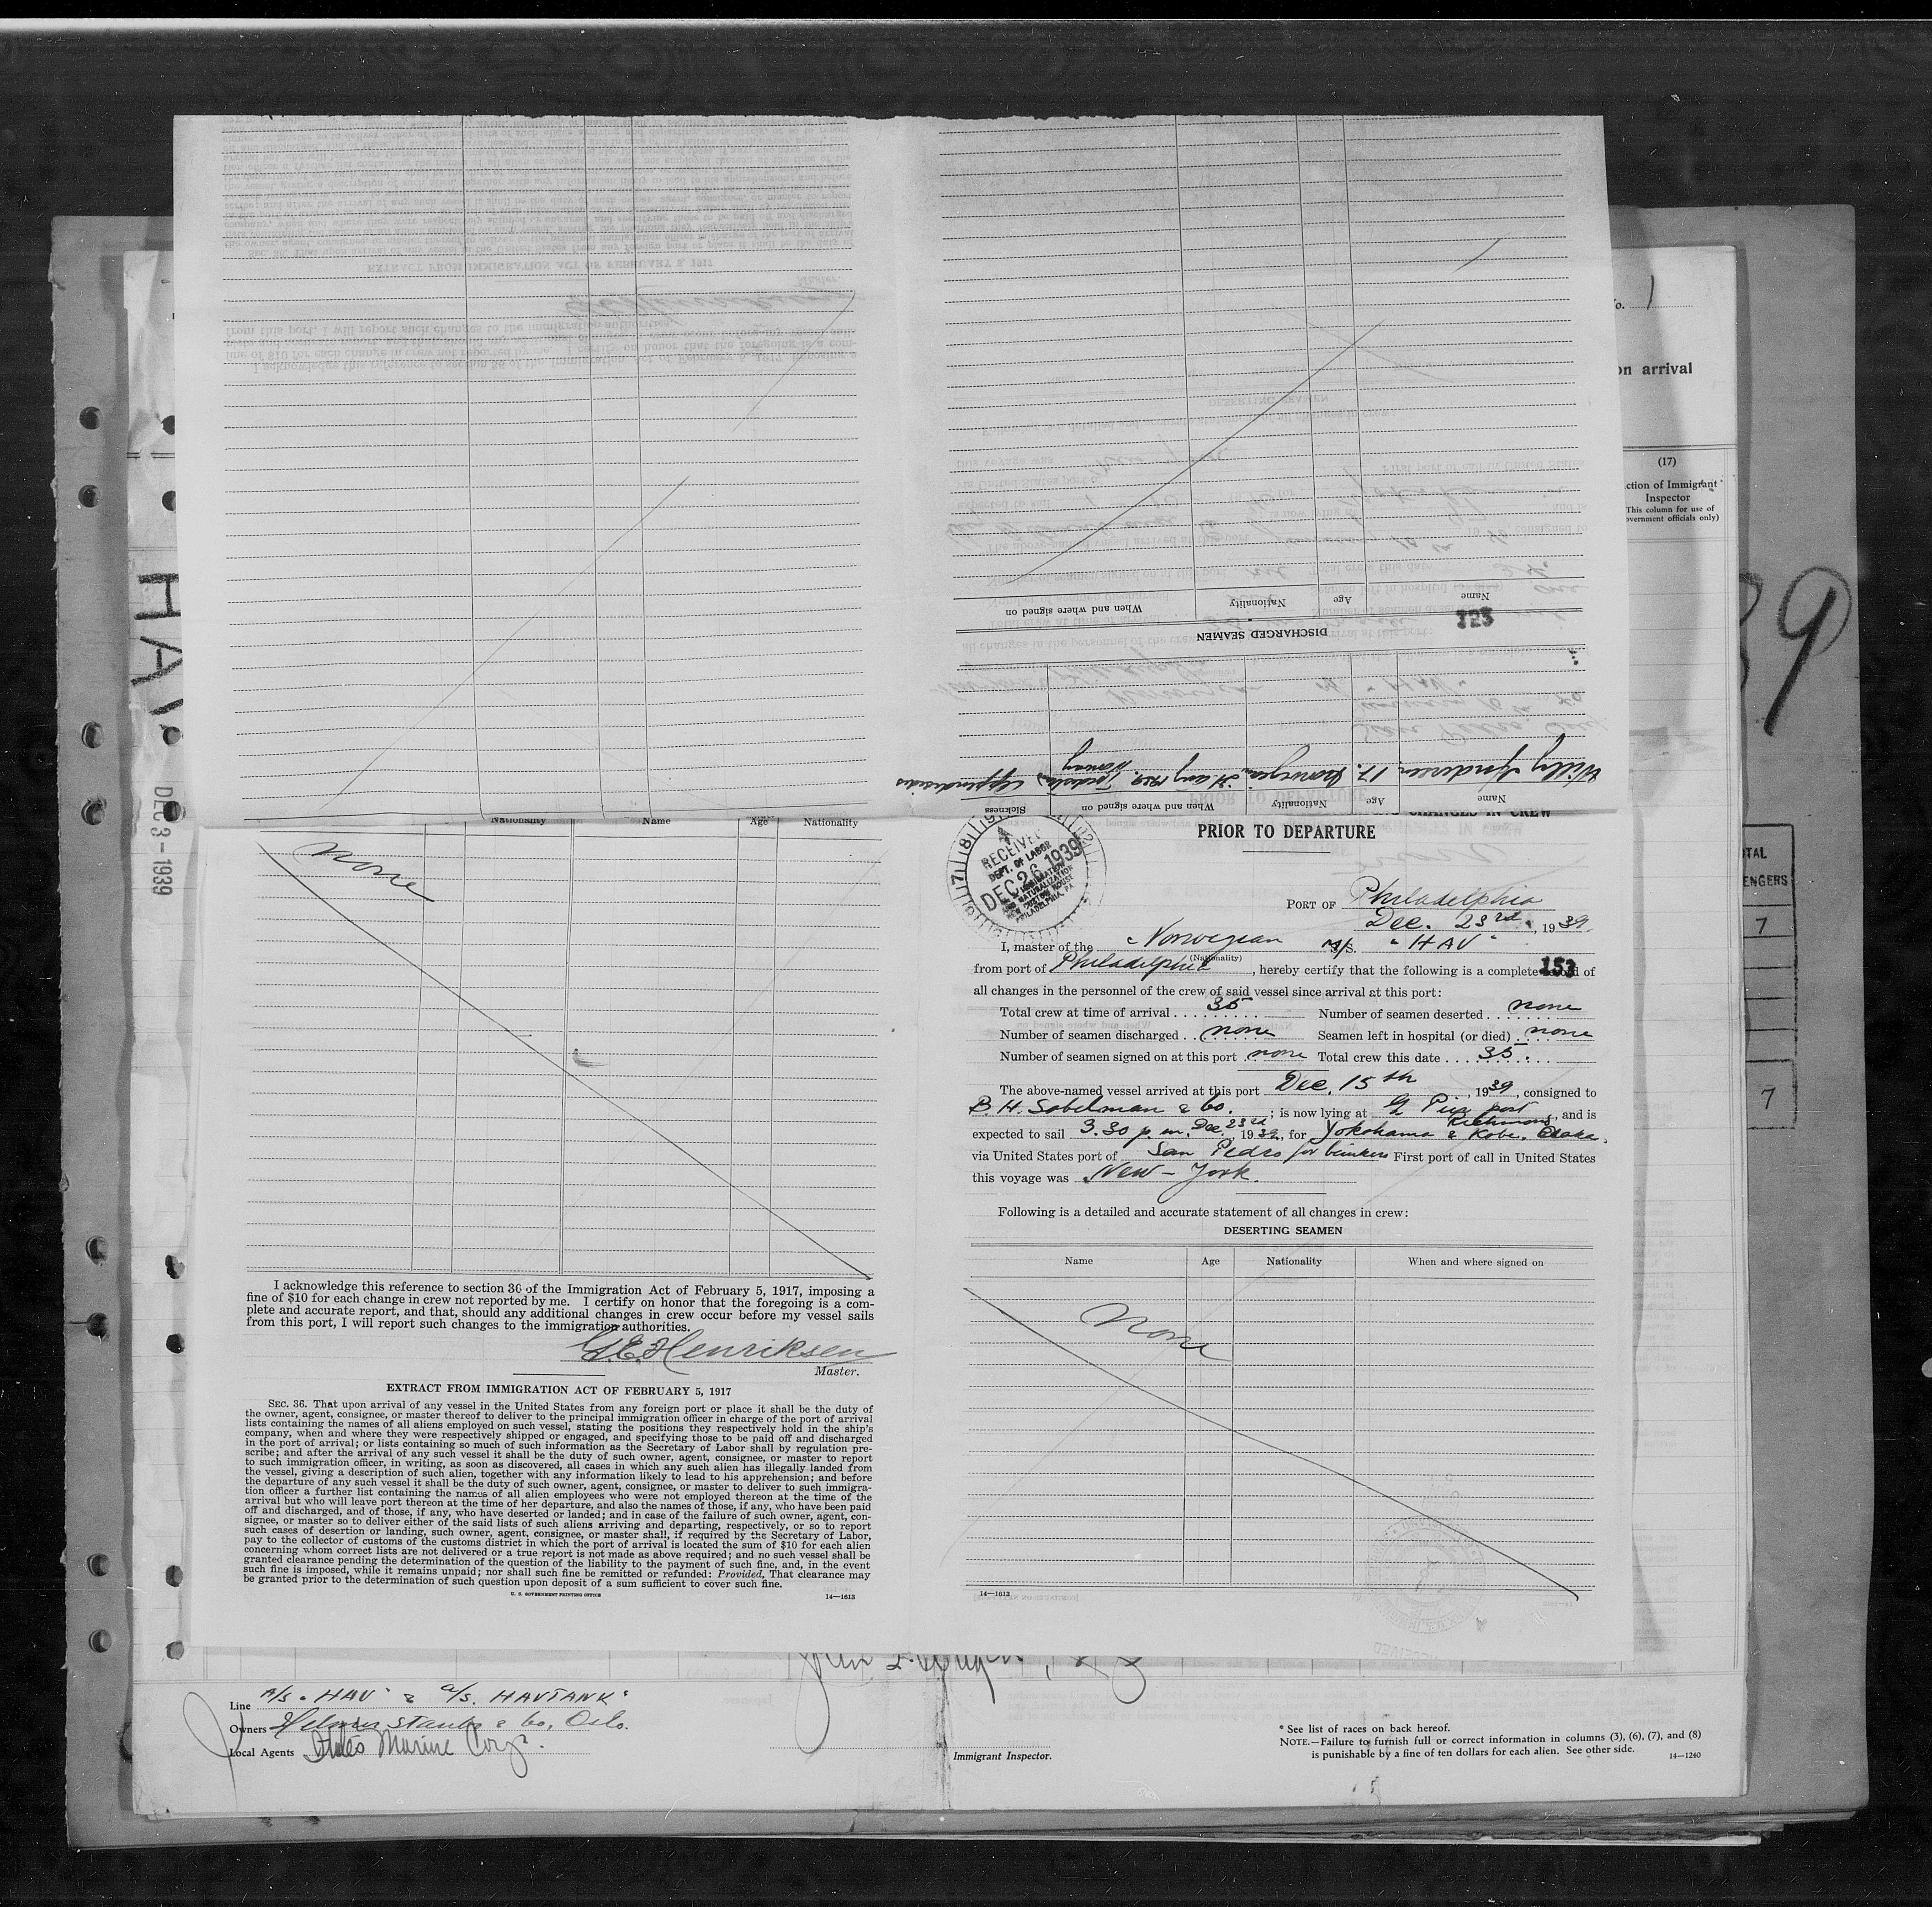 No. 1
on arrival
(17)
Action of Immigrant
Inspector
(This column for use of
government officials only)
39
HAV
DEC 3 - 1939
TOTAL
PASSENGERS
7
7
When and where signed on
Nationality
Age
Name
DISCHARGED SEAMEN
123
Willy 17. Norwegian, 31 aug 1939. Norway Appendicitis
Sickness
When and where signed on
Nationality
Age
Name
Nationality
Name
Age
Nationality
None
I acknowledge this reference to section 36 of the Immigration Act of February 5, 1917, imposing a
fine of $10 for each change in crew not reported by me. I certify on honor that the foregoing is a com-
plete and accurate report, and that, should any additional changes in crew occur before my vessel sails
from this port, I will report such changes to the immigration authorities.
G.E. Henriksen
Master.
EXTRACT FROM IMMIGRATION ACT OF FEBRUARY 5, 1917
SEC. 36. That upon arrival of any vessel in the United States from any foreign port or place it shall be the duty of
the owner, agent, consignee, or master thereof to deliver to the principal immigration officer in charge of the port of arrival
lists containing the names of all aliens employed on such vessel, stating the positions they respectively hold in the ship's
company, when and where they were respectively shipped or engaged, and specifying those to be paid off and discharged
in the port of arrival; or lists containing so much of such information as the Secretary of Labor shall by regulation pre-
scribe; and after the arrival of any such vessel it shall be the duty of such owner, agent, consignee, or master to report
to such immigration officer, in writing, as soon as discovered, all cases in which any such alien has illegally landed from
the vessel, giving a description of such alien, together with any information likely to lead to his apprehension; and before
the departure of any such vessel it shall be the duty of such owner, agent, consignee, or master to deliver to such immigra-
tion officer a further list containing the names of all alien employees who were not employed thereon at the time of the
arrival but who will leave port thereon at the time of her departure, and also the names of those, if any, who have been paid
off and discharged, and of those, if any, who have deserted or landed; and in case of the failure of such owner, agent, con-
signee, or master so to deliver either of the said lists of such aliens arriving and departing, respectively, or so to report
such cases of desertion or landing, such owner, agent, consignee, or master shall, if required by the Secretary of Labor,
pay to the collector of customs of the customs district in which the port of arrival is located the sum of $10 for each alien
concerning whom correct lists are not delivered or a true report is not made as above required; and no such vessel shall be
granted clearance pending the determination of the question of the liability to the payment of such fine, and, in the event
such fine is imposed, while it remains unpaid; nor shall such fine be remitted or refunded: Provided, That clearance may
be granted prior to the determination of such question upon deposit of a sum sufficient to cover such fine.
U. S. GOVERNMENT PRINTING OFFICE
14—1613
CHANGES IN CREW
PRIOR TO DEPARTURE
RECEIVED
DEPT. OF LABOR
DEC 26 1939
IMMIGRATION
AND NATURALIZATION
NEW CUSTOM HOUSE
PHILADELPHIA, PA
PORT OF Philadelphia
Dec. 23rd, 1939.
I, master of the Norwegian M/S. "HAV"
(Nationality)
153
from port of Philadelphia, hereby certify that the following is a complete record of
all changes in the personnel of the crew of said vessel since arrival at this port:
Total crew at time of arrival 35 Number of seamen deserted none
Number of seamen discharged none Seamen left in hospital (or died) none
Number of seamen signed on at this port none Total crew this date 35.
The above-named vessel arrived at this port Dec. 15th, 1939, consigned to
B. H. Sobelman & Co.; is now lying at G Pier port Richmond, and is
expected to sail 3.30 p.m. Dec. 23rd, 1939, for Yokohama & Kobe, Osaka.
via United States port of San Pedro for bunkers First port of call in United States
this voyage was New-York.
Following is a detailed and accurate statement of all changes in crew:
DESERTING SEAMEN
Name Age Nationality When and where signed on
None
14—1613
Line A/S. "HAV" & A/S. HAVTANK"
Owners Staubo & Co, Oslo.
Local Agents Marine Corp.
Immigrant Inspector.
* See list of races on back hereof.
NOTE.—Failure to furnish full or correct information in columns (3), (6), (7), and (8)
is punishable by a fine of ten dollars for each alien. See other side.
14—1240